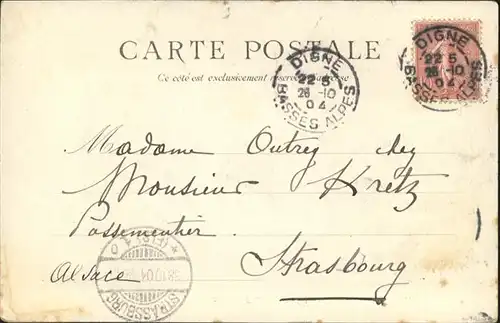 CARTE POSTALE
Ce côté est exclusivement réservé à l'adresse
DIGNE
22 5
26 -10
04
BASSES ALPES
DIGNE
22 5
26 -10
04
BASSES ALPES
Madame Outrey chez
Monsieur Kretz
Passementier
Alsace
Strasbourg
STRASSBURG